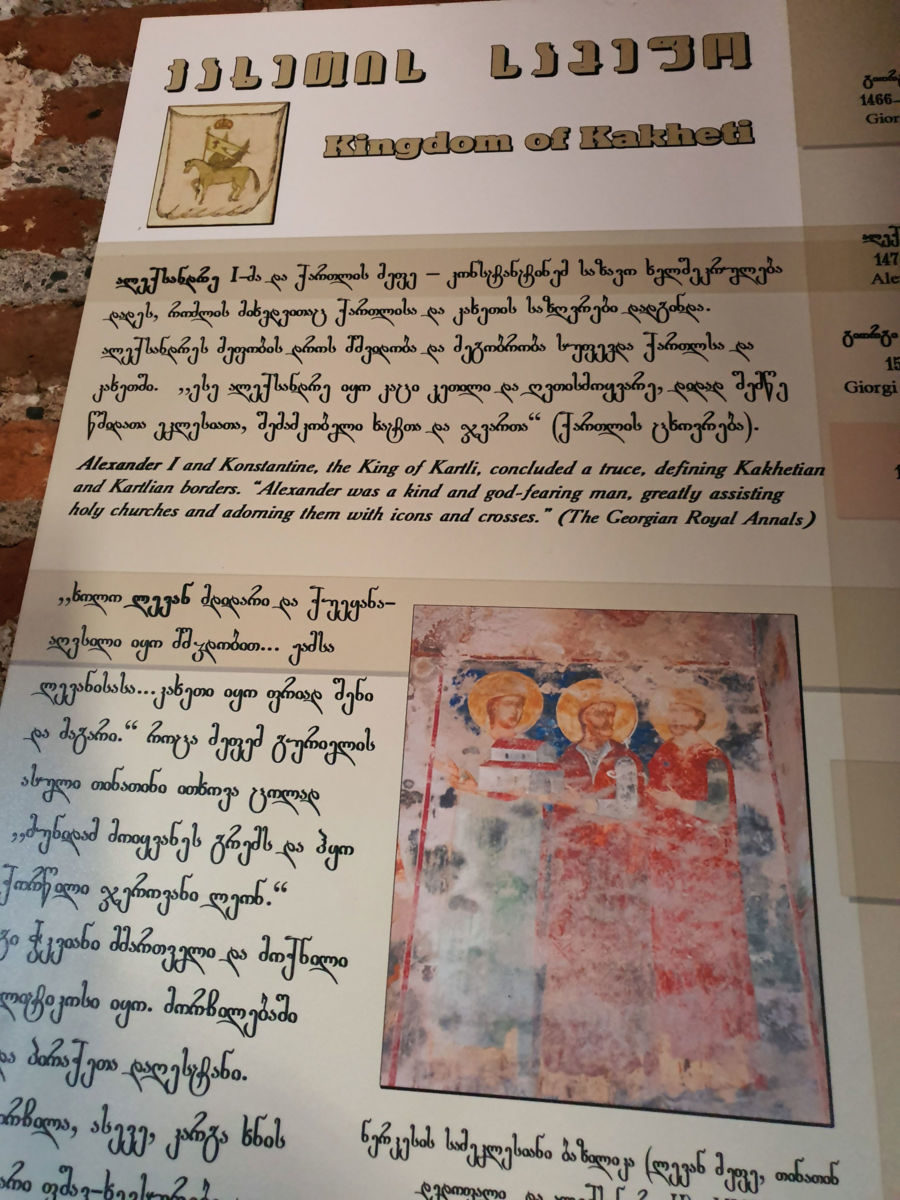 კახეთის სამეფო
Kingdom of Kakheti
ალექსანდრე I-მა და ქართლის მეფე – კონსტანტინემ საზავო ხელშეკრულება
დადეს, რომლის მიხედვითაც ქართლისა და კახეთის საზღვრები დადგინდა.
ალექსანდრეს მეფობის დროს მშვიდობა და მეგობრობა სუფევდა ქართლსა და
კახეთში. „ესე ალექსანდრე იყო კაცი კეთილი და ღვთისმოყვარე, დიდად შემწე
წმიდათა ეკლესიათა, შემამკობელი ხატთა და ჯვართა“ (ქართლის ცხოვრება).
Alexander I and Konstantine, the King of Kartli, concluded a truce, defining Kakhetian
and Kartlian borders. "Alexander was a kind and god-fearing man, greatly assisting
holy churches and adorning them with icons and crosses." (The Georgian Royal Annals)
„ხოლო ლევან მდიდარი და ქუეყანა-
აღვსილი იყო მშჳდობით... ჟამსა
ლევანისასა...კახეთი იყო ფრიად შენი
და მაგარი.“ როცა მეფემ გურიელის
ასული თინათინი ითხოვა ცოლად
„მუნიდამ მოიყვანეს გრემს და ჰყო
ქორწილი ჯეროვანი ლეონ.“
ჭკვიანი მმართველი და მოქნილი
იყო. მორჩილებაში
და დაღესტანი.
ასევე, კარგა ხნის
ნეკრესის სამეკლესიანი ბაზილიკა (ლევან მეფე, თინათინ
დედოფალი და
გიორგ
1466–
Gior
ალექ
147
Ale
გიორგი
15
Giorgi
1